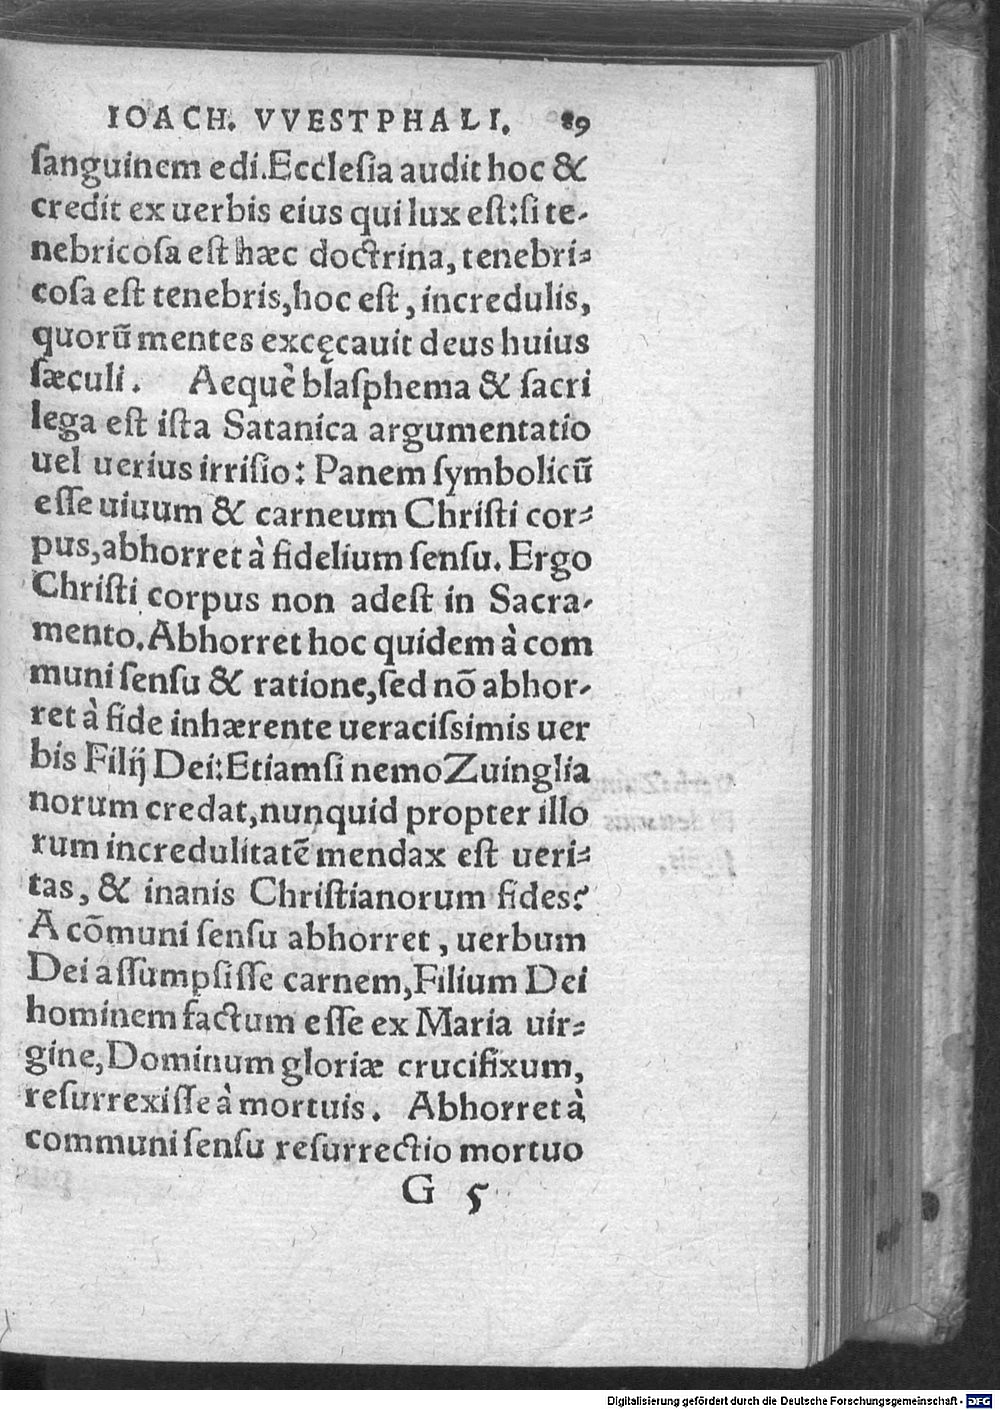 IOACH. VVESTPHALI. 89
ſanguinem edi. Eccleſia audit hoc &
credit ex uerbis eius qui lux eſt: ſi te-
nebricoſa eſt hæc doctrina, tenebri-
coſa eſt tenebris, hoc eſt, incredulis,
quorũ mentes excęcauit deus huius
ſæculi. Aequè blaſphema & ſacri
lega eſt iſta Satanica argumentatio
uel uerius irriſio: Panem ſymbolicũ
eſſe uiuum & carneum Chriſti cor-
pus, abhorret à fidelium ſenſu. Ergo
Chriſti corpus non adeſt in Sacra-
mento. Abhorret hoc quidem à com
muni ſenſu & ratione, ſed nõ abhor-
ret à fide inhærente ueraciſsimis uer
bis Filij Dei: Etiamſi nemo Zuinglia
norum credat, nunquid propter illo
rum incredulitatẽ mendax eſt ueri-
tas, & inanis Chriſtianorum fides?
A cõmuni ſenſu abhorret, uerbum
Dei aſſumpſiſſe carnem, Filium Dei
hominem factum eſſe ex Maria uir-
gine, Dominum gloriæ crucifixum,
reſurrexiſſe à mortuis. Abhorret à
communi ſenſu reſurrectio mortuo
G 5
Digitalisierung gefördert durch die Deutsche Forschungsgemeinschaft - DFG